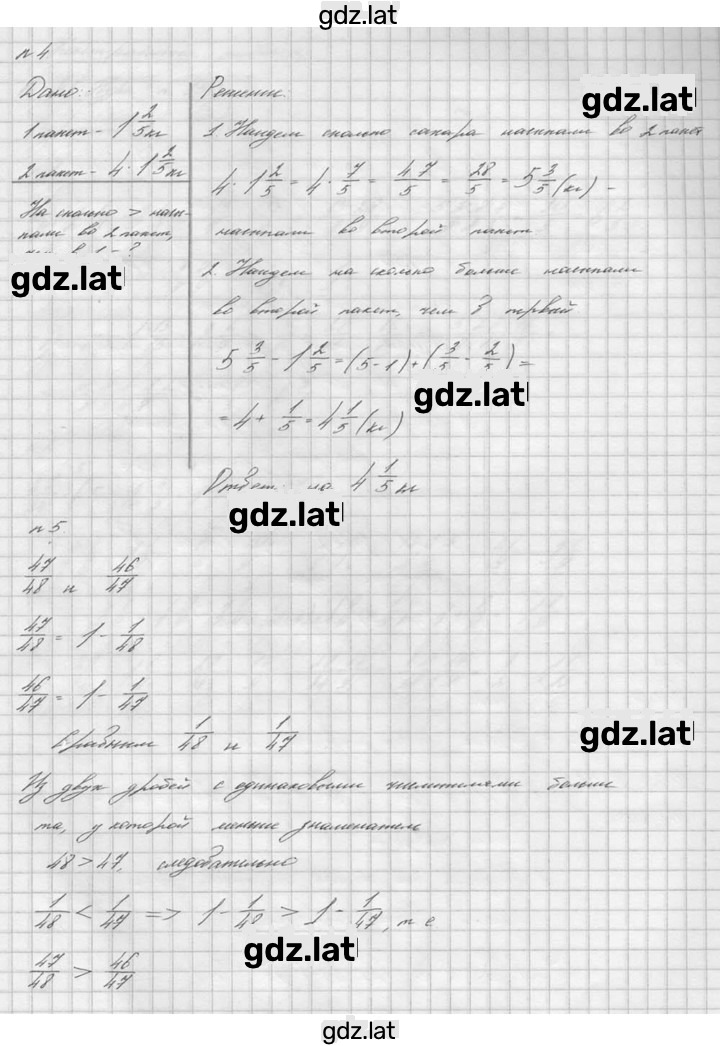 gdz.lat
n 4
Дано:
1 пакет - 1 2/5 кг
2 пакет - 4 · 1 2/5 кг
На сколько > насы-
пали во 2 пакет,
чем в 1 - ?
Решение:
1. Найдем сколько сахара насыпали во 2 пакет
4 · 1 2/5 = 4 · 7/5 = 4·7/5 = 28/5 = 5 3/5 (кг) -
насыпали во второй пакет
2. Найдем на сколько больше насыпали
во второй пакет, чем в первый
5 3/5 - 1 2/5 = (5-1) + (3/5 - 2/5) =
= 4 + 1/5 = 4 1/5 (кг)
Ответ: на 4 1/5 кг
gdz.lat
gdz.lat
gdz.lat
gdz.lat
n 5
47/48 и 46/47
47/48 = 1 - 1/48
46/47 = 1 - 1/47
Сравним 1/48 и 1/47
gdz.lat
Из двух дробей с одинаковыми числителями больше
та, у которой меньше знаменатель
48 > 47, следовательно
1/48 < 1/47 => 1 - 1/48 > 1 - 1/47, т е
gdz.lat
47/48 > 46/47
gdz.lat